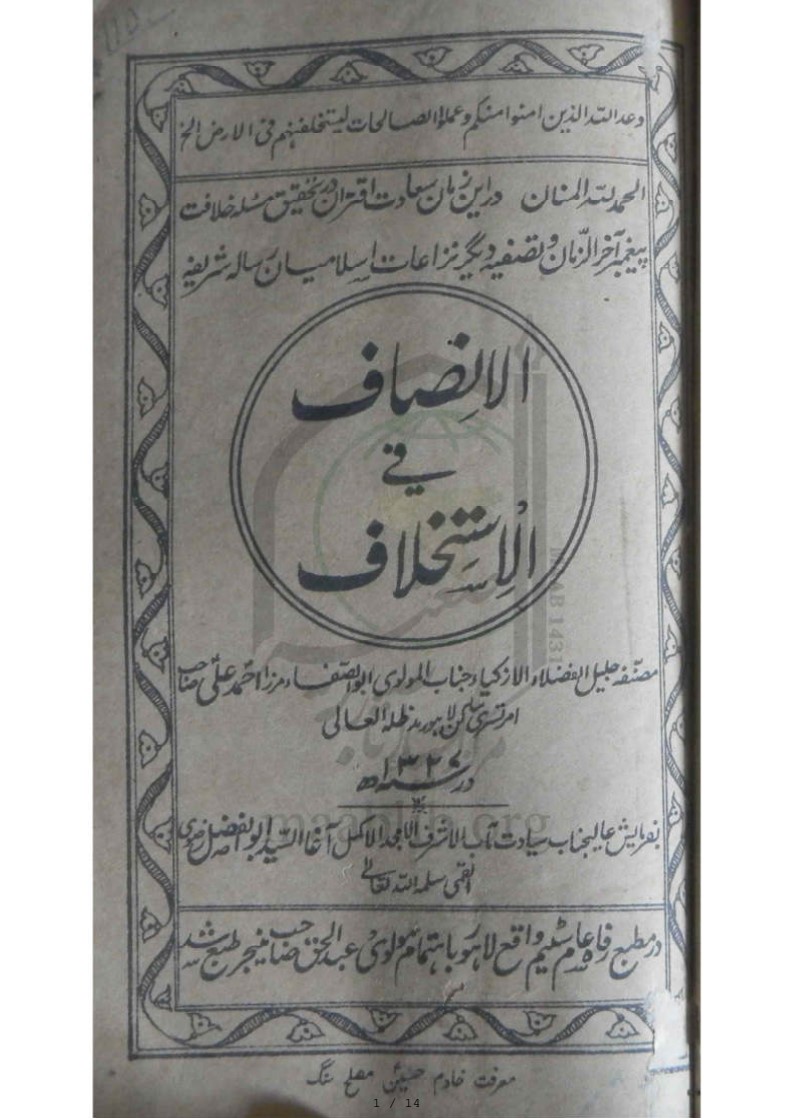 وعد الله الذين امنوا منكم وعملوا الصالحات ليستخلفنهم فى الارض الخ
الحمد لله المنان در این زمان سعادت اقتران در تحقیق مسئله خلافت
پیغمبر آخر الزّمان و تصفیه دیگر نزاعات اسلامیان رساله شریفه
الانصاف
في
الاستخلاف
مصنّفه جلیل الفضلاء الازکیاء جناب المولوی ابو الصفاء مرزا احمد علی صاحب
امرتسری ساکن لاہور مد ظله العالی
در سنه ۱۳۲۷ھ
بفرمایش عالیجناب سیادت مآب الاشرف الامجد الاکمل آغا السید ابو الفضل رضوی
القمی سلمه الله تعالی
در مطبع رفاه عام سٹیم واقع لاہور باہتمام مولوی عبد الحق صاحب منیجر طبع شد
معرفت خادم حسین مصلح سنگ
MAAB 1431
maablib.org
1 / 14